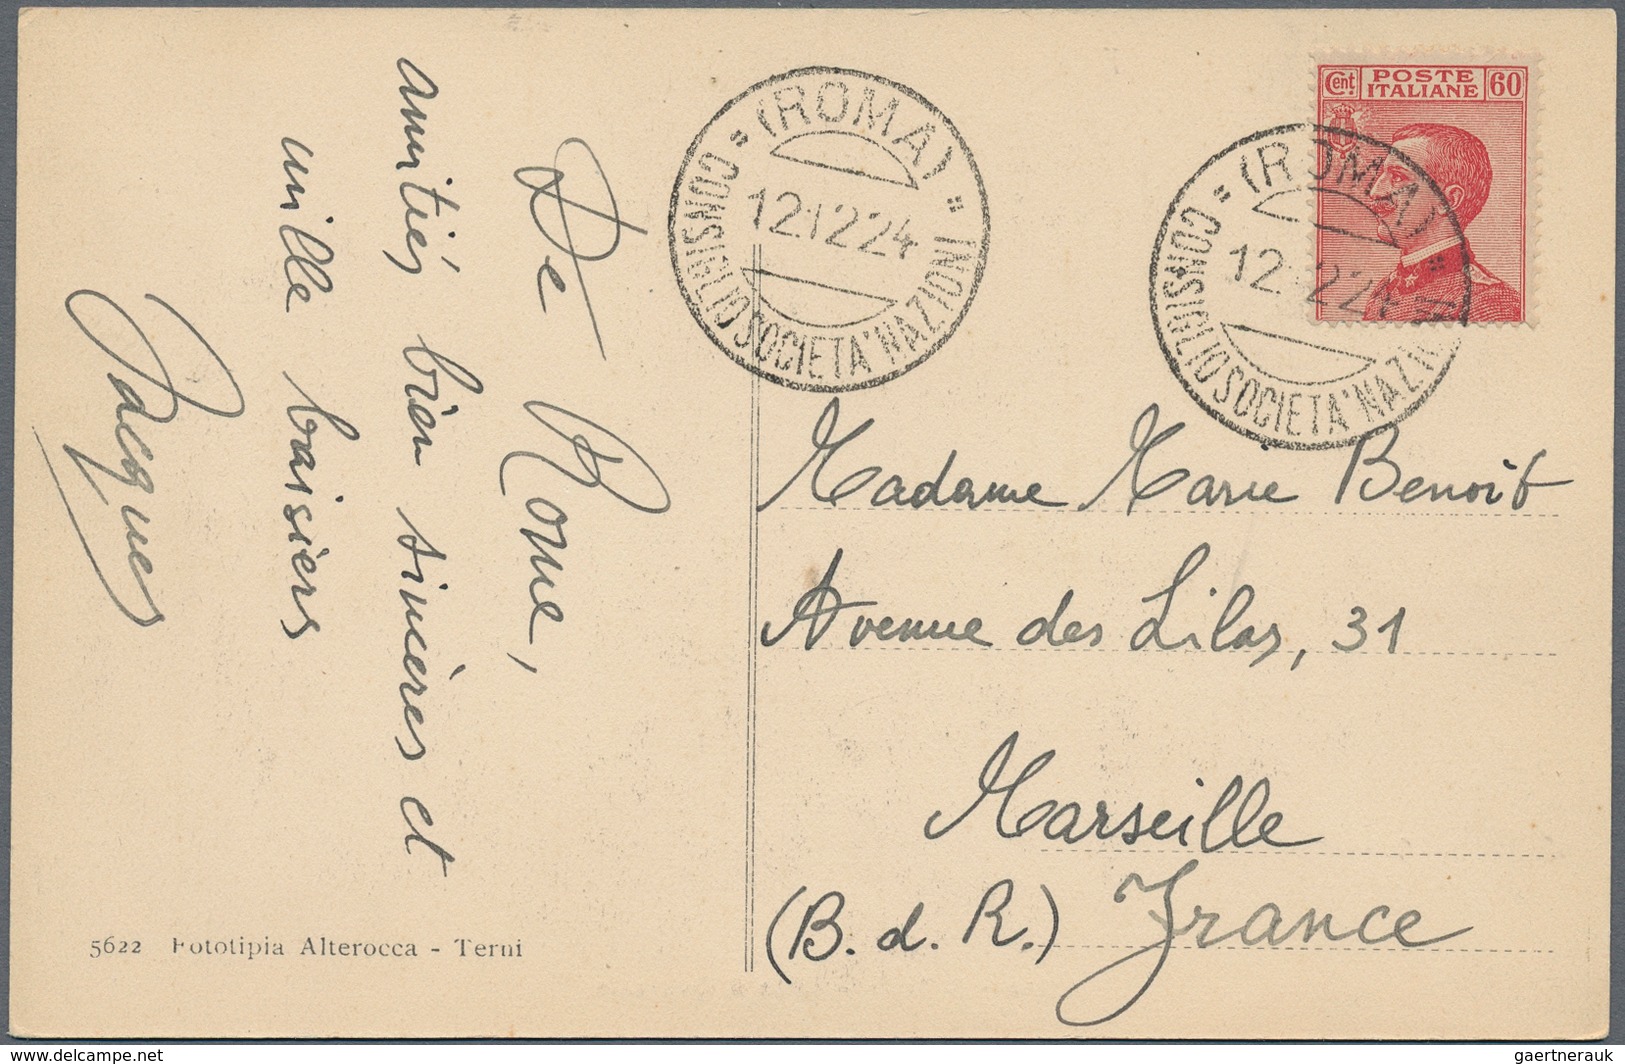 De Rome,
amitiés bien sincères et
mille baisers
Jacques
5622 Fototipia Alterocca - Terni
(ROMA)
12.12.24
CONSIGLIO SOCIETA' NAZIONI
Cent POSTE ITALIANE 60
(ROMA)
12.12.24
CONSIGLIO SOCIETA' NAZIONI
Madame Marie Benoit
Avenue des Lilas, 31
Marseille
(B. d. R.) France
www.delcampe.net
gaertnerauk